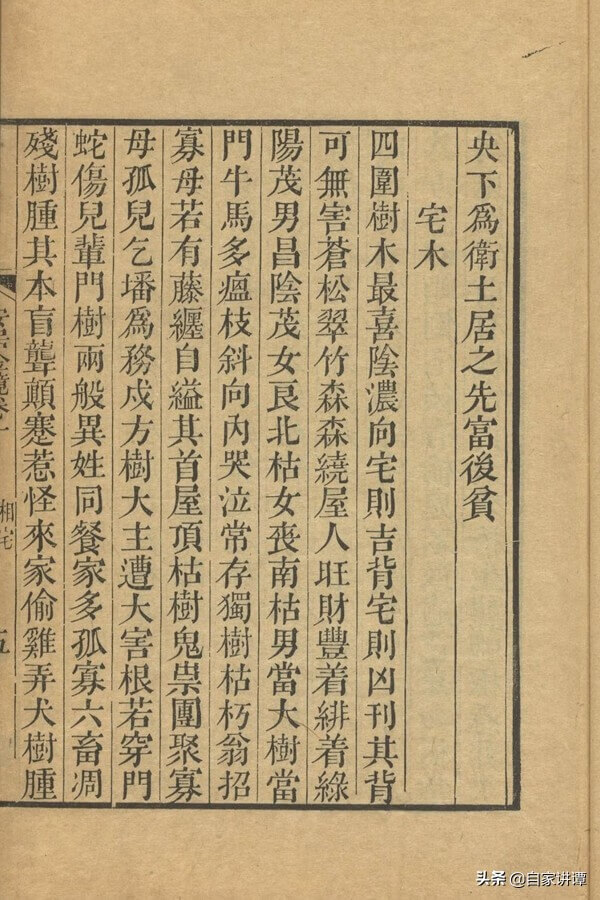 央下爲衛土居之先富後貧
宅木
四圍樹木最喜陰濃向宅則吉背宅則凶刊其背
可無害蒼松翠竹森森繞屋人旺財豐着緋着綠
陽茂男昌陰茂女良北枯女喪南枯男當大樹當
門牛馬多瘟枝斜向內哭泣常存獨樹枯朽翁招
寡母若有藤纒自縊其首屋頂枯樹鬼祟團聚寡
母孤兒乞墦爲務戍方樹大主遭大害根若穿門
蛇傷兒輩門樹兩般異姓同餐家多孤寡六畜凋
殘樹腫其本盲聾顛蹇惹怪來家偷雞弄犬樹腫
相宅
五
头条 @自家讲谭